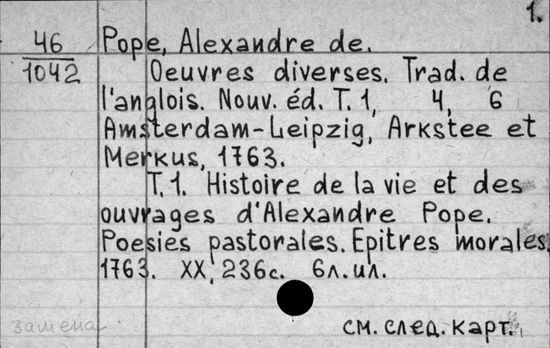 1.
46
1042
Pope, Alexandre de.
Oeuvres diverses. Trad. de
l'anglois. Nouv. éd. T. 1, 4, 6
Amsterdam-Leipzig, Arkstee et
Merkus, 1763.
T. 1. Histoire de la vie et des
ouvrages d'Alexandre Pope.
Poesies pastorales. Epitres morales.
1763. XX, 236с. 6л. ил.
замена
см. след. карт.